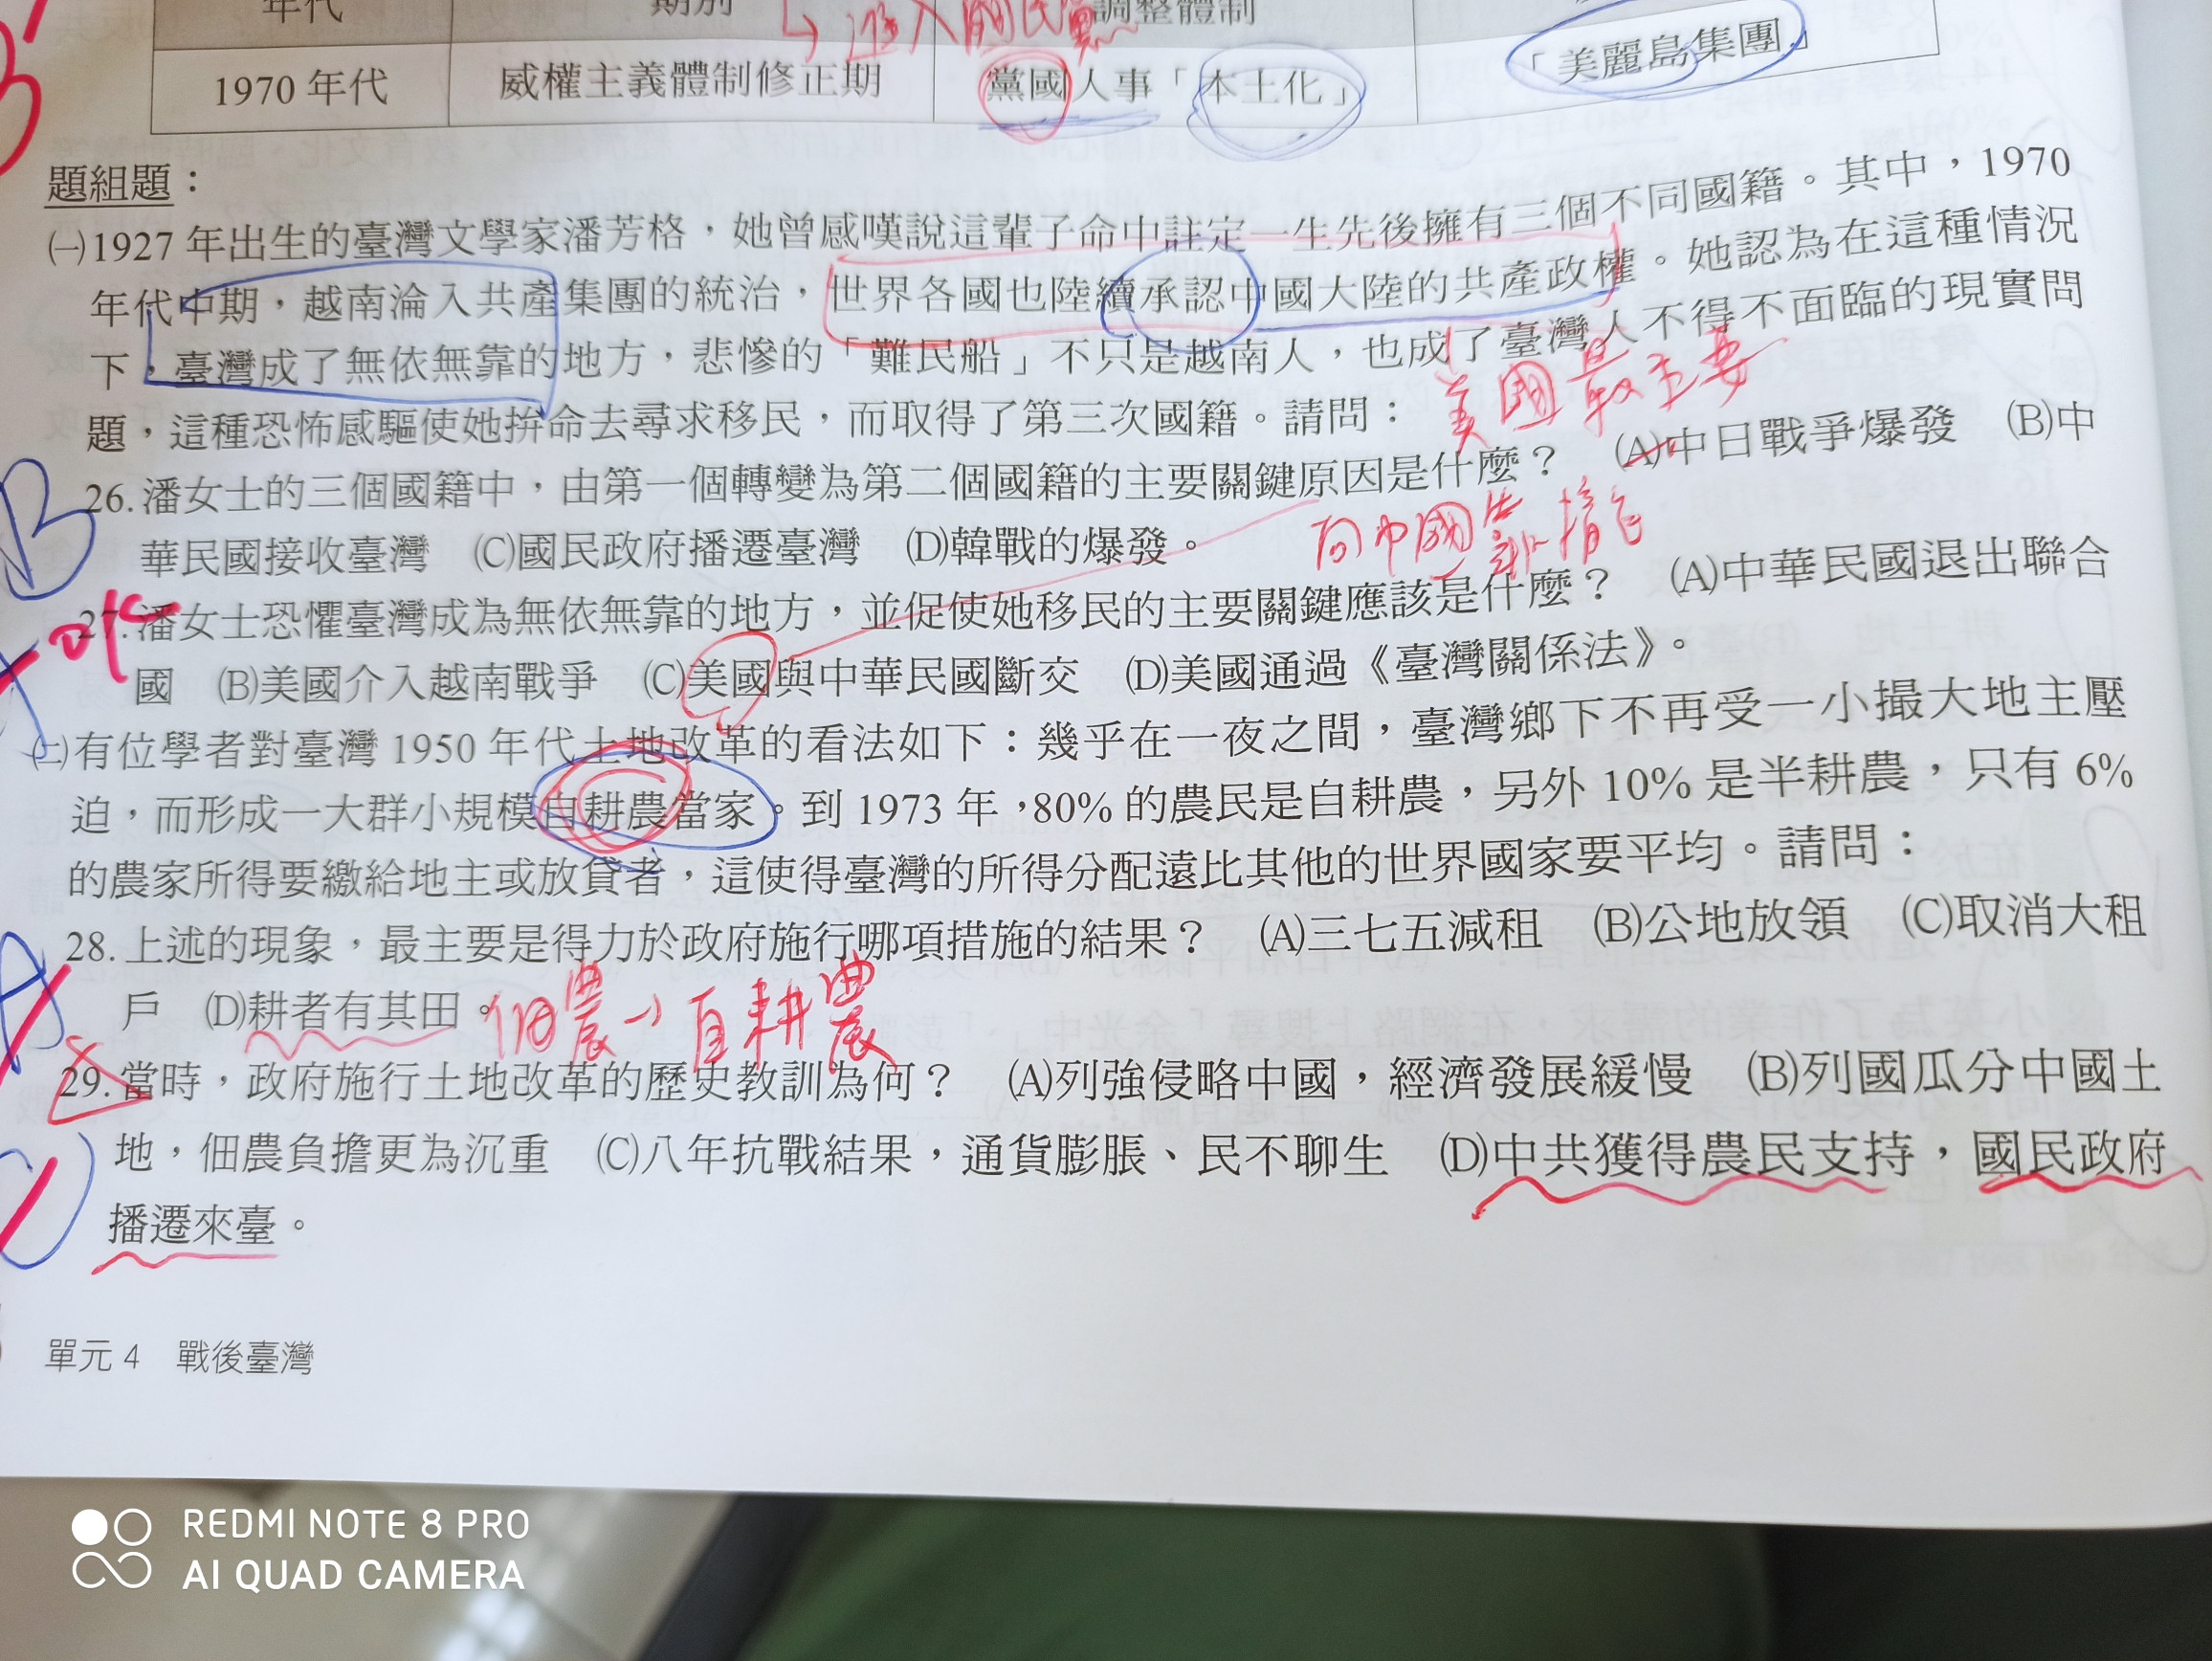 年代 期別 調整體制
進入國民黨
1970 年代 威權主義體制修正期 黨國人事「本土化」 「美麗島集團」
題組題：
㈠1927 年出生的臺灣文學家潘芳格，她曾感嘆說這輩子命中註定一生先後擁有三個不同國籍。其中，1970
年代中期，越南淪入共產集團的統治，世界各國也陸續承認中國大陸的共產政權。她認為在這種情況
下，臺灣成了無依無靠的地方，悲慘的「難民船」不只是越南人，也成了臺灣人不得不面臨的現實問
題，這種恐怖感驅使她拚命去尋求移民，而取得了第三次國籍。請問：
美國最主要
B
26.潘女士的三個國籍中，由第一個轉變為第二個國籍的主要關鍵原因是什麼？ (A)中日戰爭爆發 (B)中
華民國接收臺灣 (C)國民政府播遷臺灣 (D)韓戰的爆發。
27.潘女士恐懼臺灣成為無依無靠的地方，並促使她移民的主要關鍵應該是什麼？ (A)中華民國退出聯合
國 (B)美國介入越南戰爭 (C)美國與中華民國斷交 (D)美國通過《臺灣關係法》。
㈡有位學者對臺灣 1950 年代土地改革的看法如下：幾乎在一夜之間，臺灣鄉下不再受一小撮大地主壓
迫，而形成一大群小規模自耕農當家。到 1973 年，80% 的農民是自耕農，另外 10% 是半耕農，只有 6%
的農家所得要繳給地主或放貸者，這使得臺灣的所得分配遠比其他的世界國家要平均。請問：
A
28.上述的現象，最主要是得力於政府施行哪項措施的結果？ (A)三七五減租 (B)公地放領 (C)取消大租
戶 (D)耕者有其田。
佃農→自耕農
29.當時，政府施行土地改革的歷史教訓為何？ (A)列強侵略中國，經濟發展緩慢 (B)列國瓜分中國土
地，佃農負擔更為沉重 (C)八年抗戰結果，通貨膨脹、民不聊生 (D)中共獲得農民支持，國民政府
播遷來臺。
單元 4 戰後臺灣
REDMI NOTE 8 PRO
AI QUAD CAMERA